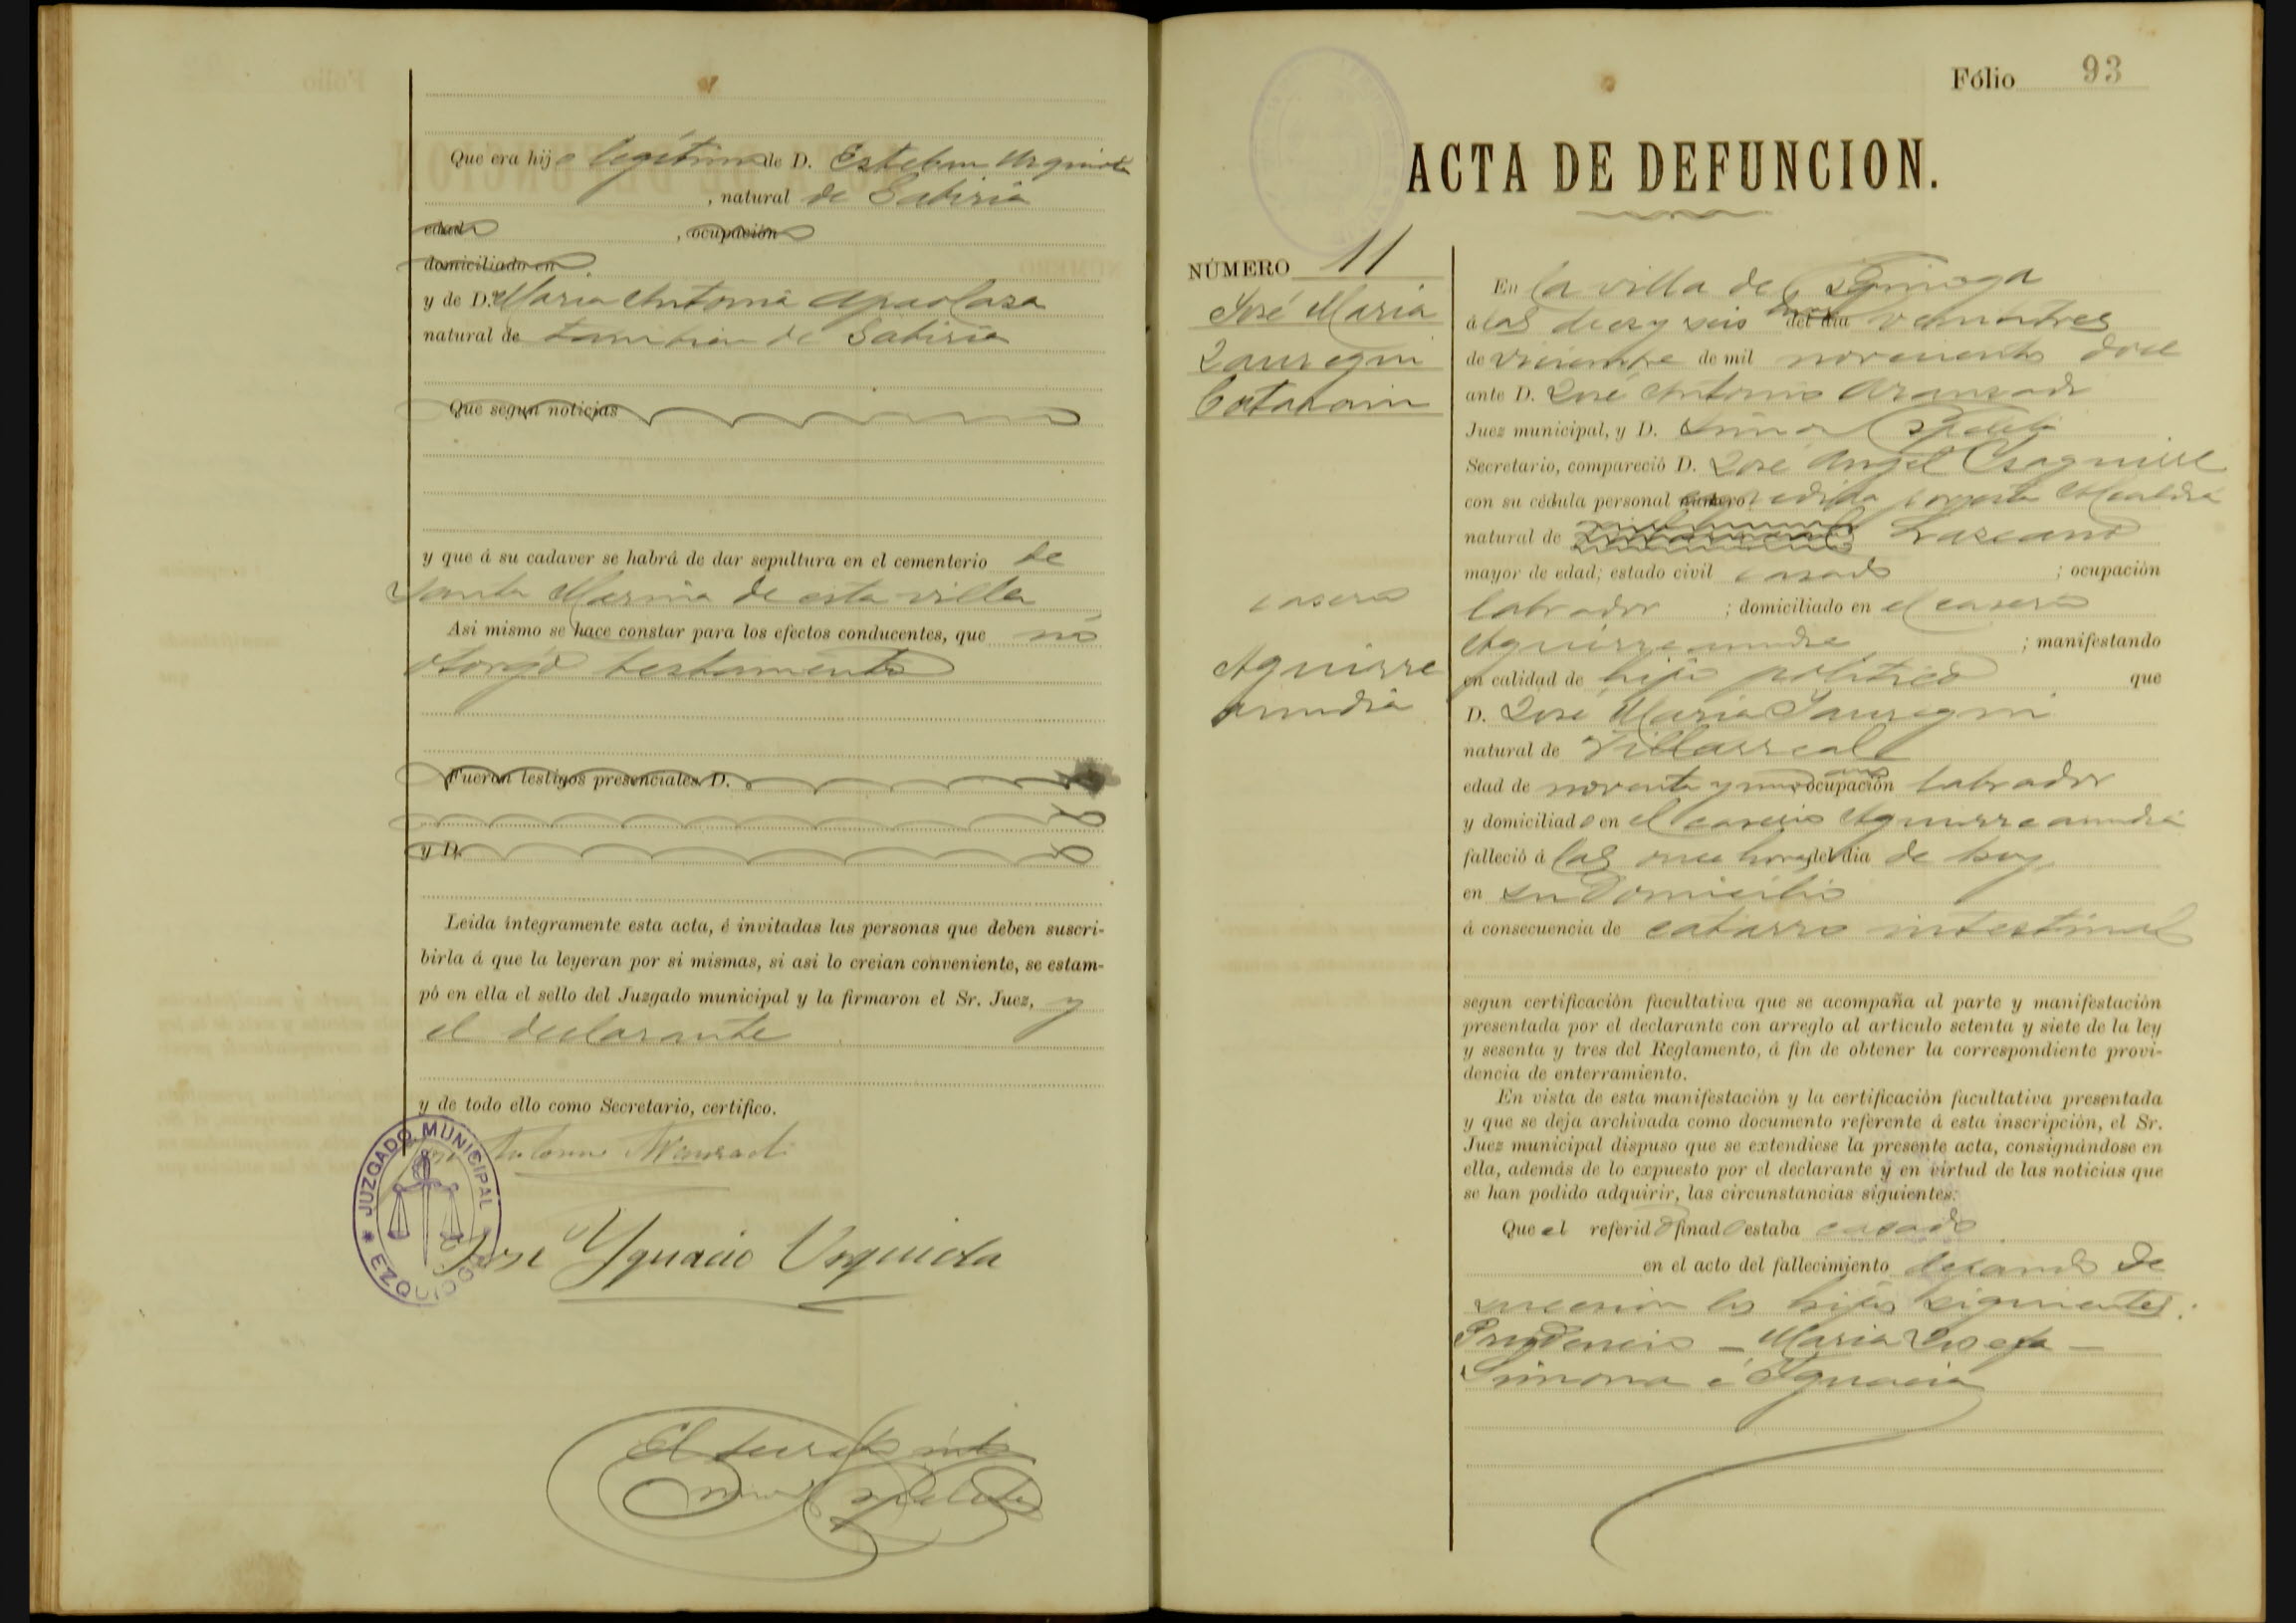 Que era hijo legítimo de D. Esteban Urquiola
, natural de Gabiria
edad , ocupación
domiciliado en
y de D.ª Maria Antonia Apaolaza
natural de tambien de Gabiria
Que segun noticias
y que á su cadaver se habrá de dar sepultura en el cementerio de
Santa Marina de esta villa
Asi mismo se hace constar para los efectos conducentes, que no
otorgó testamento
Fueron testigos presenciales D.
y D.
Leida íntegramente esta acta, é invitadas las personas que deben suscri-
birla á que la leyeran por si mismas, si asi lo creian conveniente, se estam-
pó en ella el sello del Juzgado municipal y la firmaron el Sr. Juez, y
el declarante
y de todo ello como Secretario, certifico.
José Antonio Aranzadi
JUZGADO MUNICIPAL
José Ygnacio Urquiola
EZQUIOGA
El Secretario
Fólio 93
ACTA DE DEFUNCION.
NÚMERO 11
José Maria
Jauregui
caserio
Aguirre
En la villa de Ezquioga
á las diez y seis horas del dia veintitres
de de mil novecientos doce
ante D. José Antonio Aranzadi
Juez municipal, y D. Simon
Secretario, compareció D. José Angel Esaguirre
con su cédula personal número expedida por esta Alcaldia
natural de Lazcano
mayor de edad; estado civil casado ; ocupación
labrador ; domiciliado en el caserio
; manifestando
en calidad de hijo politico que
D. José Maria Jauregui
natural de Villarreal
edad de noventa y un años ocupación labrador
y domiciliado en el caserio
falleció á las once horas del dia de hoy
en su domicilio
á consecuencia de catarro intestinal
segun certificación facultativa que se acompaña al parte y manifestación
presentada por el declarante con arreglo al artículo setenta y siete de la ley
y sesenta y tres del Reglamento, á fin de obtener la correspondiente provi-
dencia de enterramiento.
En vista de esta manifestación y la certificación facultativa presentada
y que se deja archivada como documento referente á esta inscripción, el Sr.
Juez municipal dispuso que se extendiese la presente acta, consignándose en
ella, además de lo expuesto por el declarante y en virtud de las noticias que
se han podido adquirir, las circunstancias siguientes:
Que el referido finado estaba casado
en el acto del fallecimiento dejando de
sucesion los hijos siguientes:
Prudencio - Maria Josefa -
Simona é Ignacia